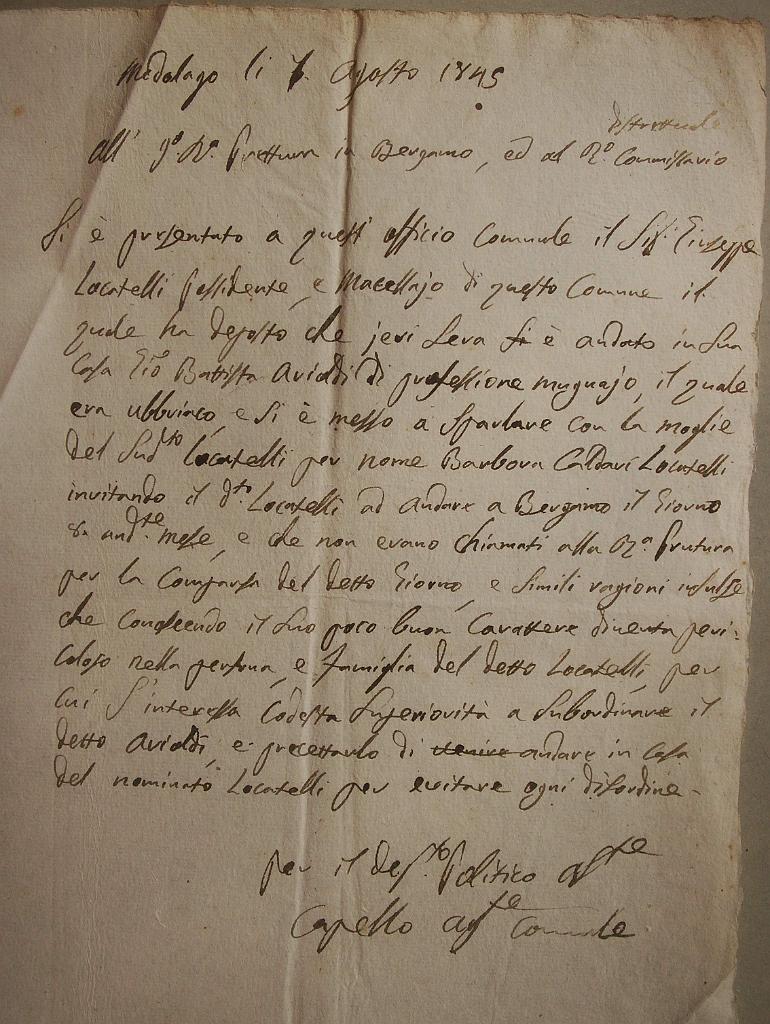 Medolago li 7. Agosto 1845
distrettuale
All' I. R. Prettura in Bergamo, ed al R.o Commissario
Si è presentato a quest' officio Comunale il Sig. Giuseppe
Locatelli possidente, e Macellajo di questo Comune il
quale ha deposto, che jeri sera si è andato in sua
Casa Gio Battista Arioldi di professione mugnajo, il quale
era ubbriaco, e si è messo a sparlare con la moglie
del sud.to Locatelli per nome Barbora Caldari Locatelli
invitando il d.to Locatelli ad andare a Bergamo il Giorno
8. and.te mese, e che non erano chiamati alla R.a Prutura
per la Comparsa del detto Giorno, e simili ragioni insulse
che Conoscendo il suo poco buon Carattere diventa peri-
coloso nella persona, e famiglia del detto Locatelli, per
cui s'interessa Codesta Superiorità a subordinare il
detto Arioldi, e precettarlo di venire andare in Casa
del nominato Locatelli per evitare ogni disordine -
per il dep.to Politico ass.te
Capello ag.te Comunale